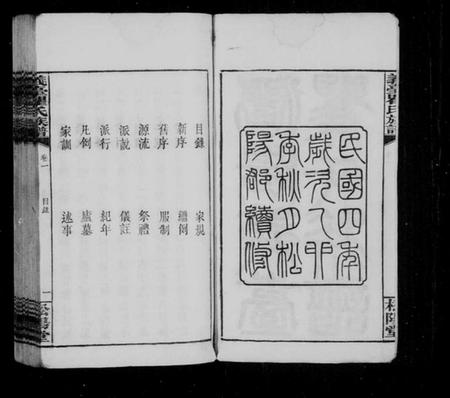 義堂瞿氏族譜
松陽堂
民國四年
歲次乙卯
季秋月松
陽郡續修
目錄　家規
新序　續例
舊序　服制
源流　祭禮
派說　儀註
派行　紀年
凡例　廬墓
家訓　述事
義堂瞿氏族譜　卷一　目錄　一　松陽堂